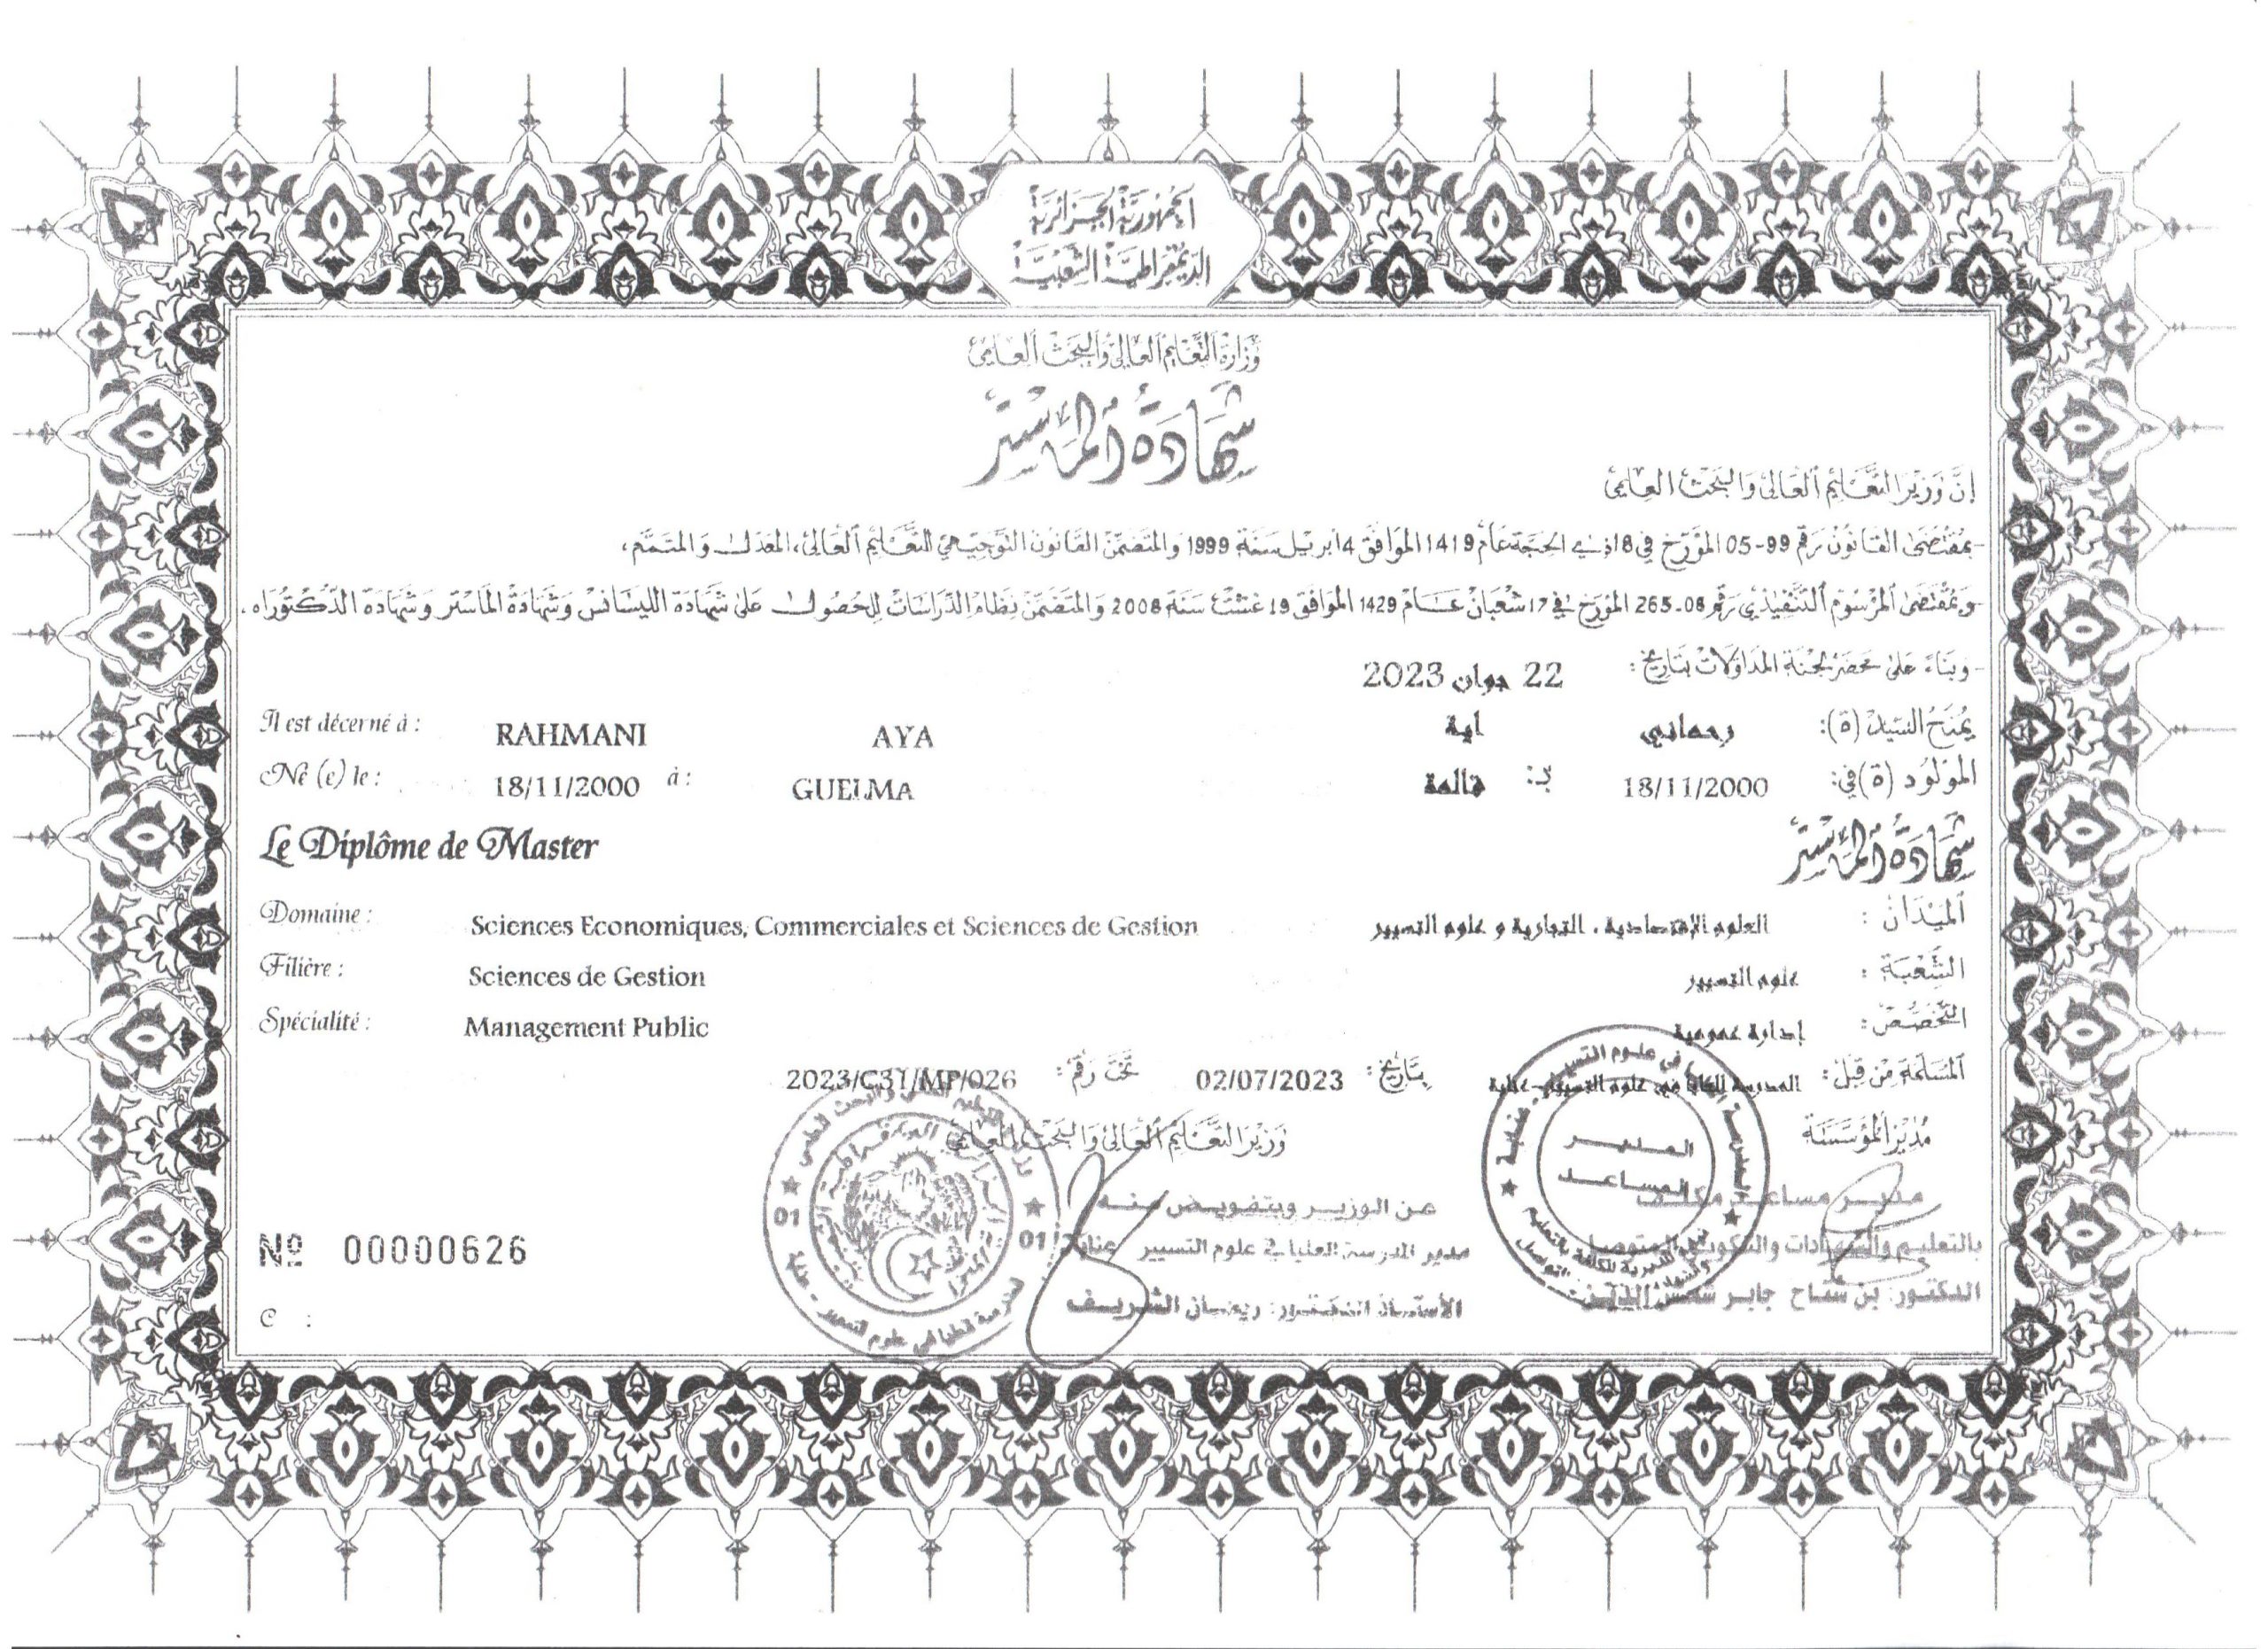 الجمهورية الجزائرية
الديمقراطية الشعبية
وزارة التعليم العالي والبحث العلمي
شهادة الماستر
إن وزير التعليم العالي والبحث العلمي
- بمقتضى القانون رقم 99-05 المؤرخ في 18 ذي الحجة عام 1419 الموافق 4 أبريل سنة 1999 والمتضمن القانون التوجيهي للتعليم العالي، المعدل والمتمم،
- وبمقتضى المرسوم التنفيذي رقم 08-265 المؤرخ في 17 شعبان عام 1429 الموافق 19 غشت سنة 2008 والمتضمن نظام الدراسات للحصول على شهادة الليسانس وشهادة الماستر وشهادة الدكتوراه.
- وبناء على محضر لجنة المداولات بتاريخ: 22 جوان 2023
يمنح السيد (ة): رحماني اية
Il est décerné à : RAHMANI AYA
المولود (ة) في: 18/11/2000 بـ: قالمة
Né (e) le : 18/11/2000 à : GUELMA
شهادة الماستر
Le Diplôme de Master
الميدان : العلوم الإقتصادية ، التجارية و علوم التسيير
Domaine : Sciences Economiques, Commerciales et Sciences de Gestion
الشعبة : علوم التسيير
Filière : Sciences de Gestion
التخصص : إدارة عمومية
Spécialité : Management Public
المسلمة من قبل : المدرسة العليا في علوم التسيير - عنابة بتاريخ : 02/07/2023 تحت رقم : 2023/C31/MP/026
مدير المؤسسة
وزير التعليم العالي والبحث العلمي
المدير
المساعد
مدير مساعد مكلف
بالتعليم والشهادات والتكوين المتوصل
الدكتور: بن شداح جابر شمس الدين
عن الوزير وبتفويض منه
مدير المدرسة العليا في علوم التسيير عنابة
الأستاذ الدكتور: ريحان الشريف
01 01
Nº 00000626
C :